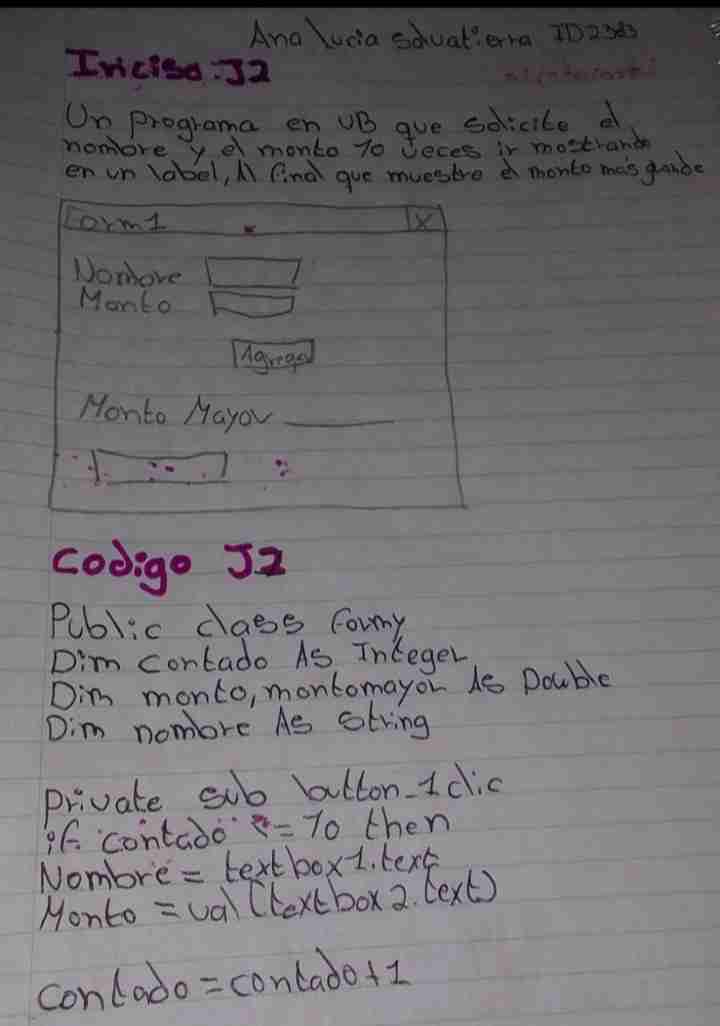 Ana lucia salvatierra ID2383
Iricisa: J2
Un programa en VB que solicite el
nombre y el monto 10 veces ir mostrando
en un label, Al final que muestre el monto más grande
Form1 X
Nombre
Monto
Agregar
Monto Mayor
Codigo J2
Public class Formy
Dim contado As Integer
Dim monto, montomayor As Double
Dim nombre As string
Private sub button_1 clic
if contado <= 10 then
Nombre = textbox1.text
Monto = val (textbox2.text)
contado = contado + 1